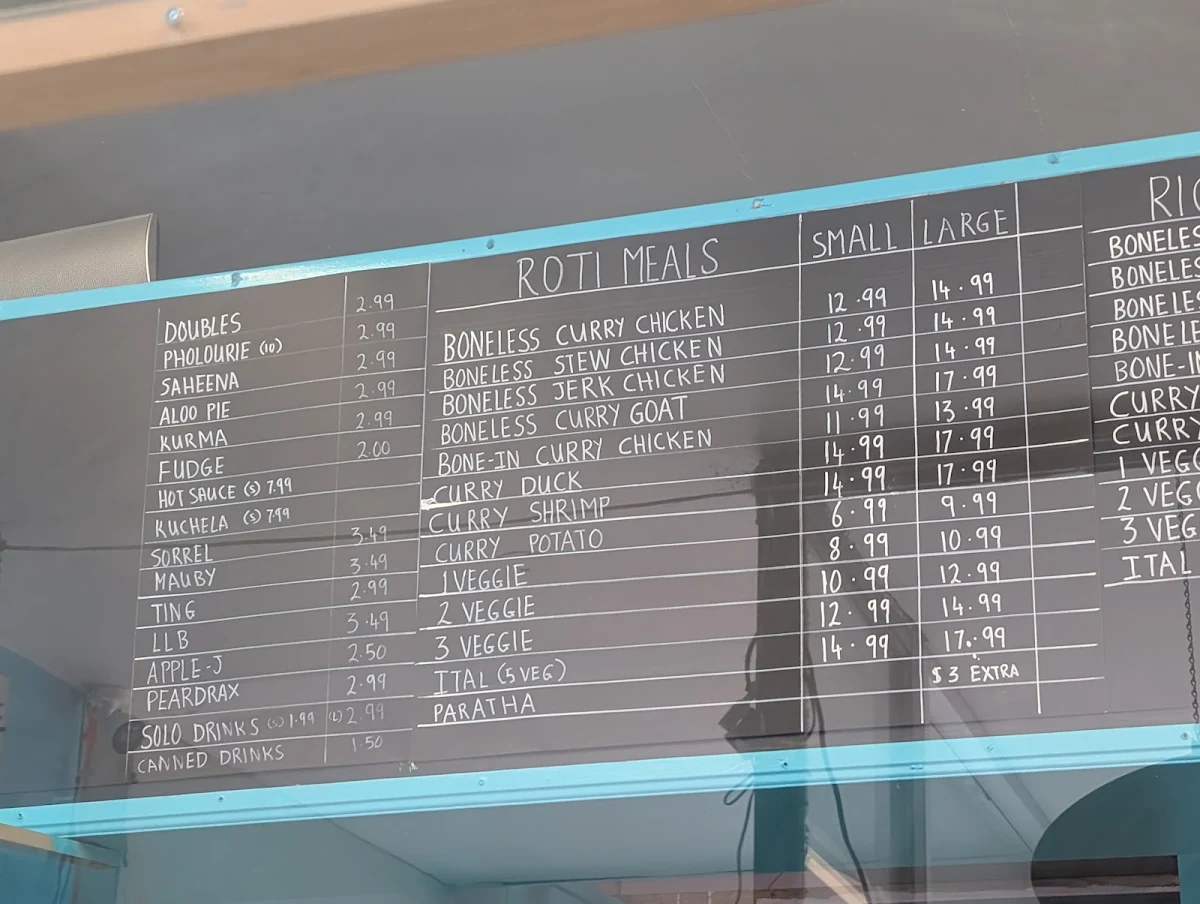 DOUBLES 2.99
PHOLOURIE (10) 2.99
SAHEENA 2.99
ALOO PIE 2.99
KURMA 2.99
FUDGE 2.00
HOT SAUCE (S) 7.99
KUCHELA (S) 7.99
SORREL 3.49
MAUBY 3.49
TING 2.99
LLB 3.49
APPLE-J 2.50
PEARDRAX 2.99
SOLO DRINKS (S) 1.99 (L) 2.99
CANNED DRINKS 1.50
ROTI MEALS SMALL LARGE
BONELESS CURRY CHICKEN 12.99 14.99
BONELESS STEW CHICKEN 12.99 14.99
BONELESS JERK CHICKEN 12.99 14.99
BONELESS CURRY GOAT 14.99 17.99
BONE-IN CURRY CHICKEN 11.99 13.99
CURRY DUCK 14.99 17.99
CURRY SHRIMP 14.99 17.99
CURRY POTATO 6.99 9.99
1 VEGGIE 8.99 10.99
2 VEGGIE 10.99 12.99
3 VEGGIE 12.99 14.99
ITAL (5 VEG) 14.99 17.99
PARATHA $3 EXTRA
RIC
BONELES
BONELES
BONELES
BONELE
BONE-IN
CURRY
CURRY
1 VEGG
2 VEG
3 VEG
ITAL